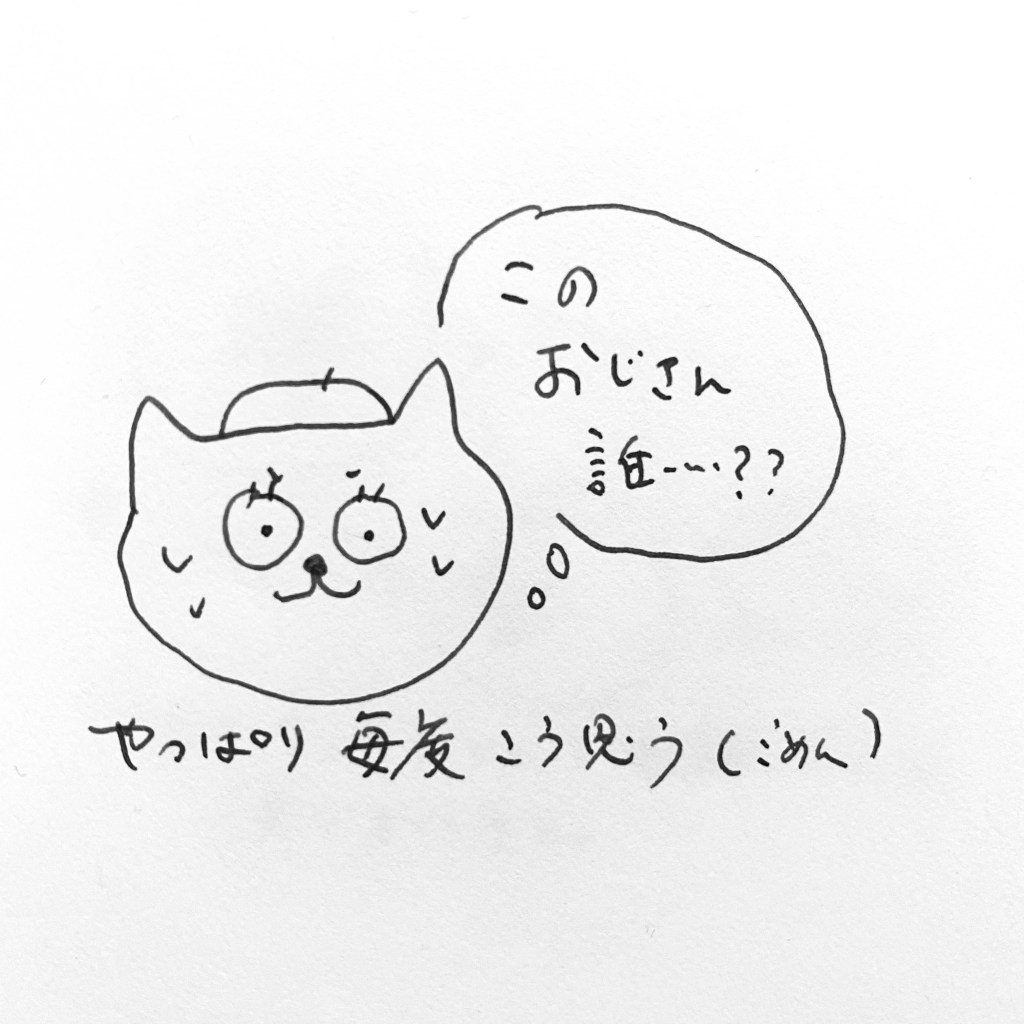 この
おじさん
誰……??
やっぱり 毎度 こう思う (ごめん)